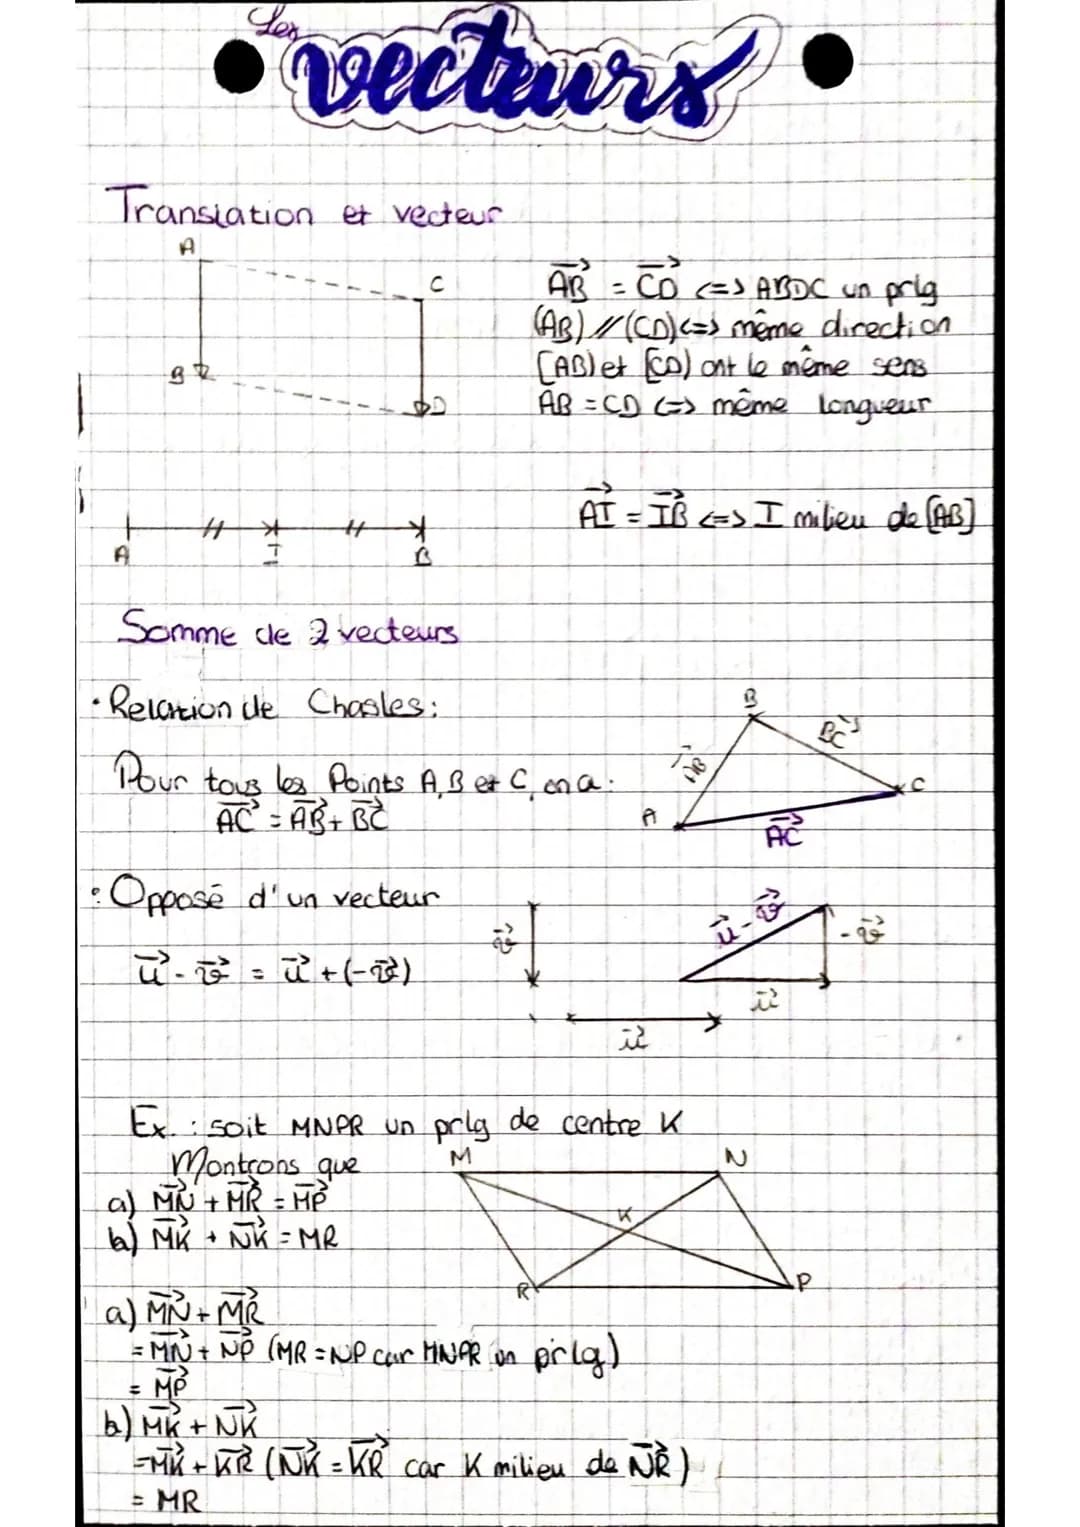 Les
vecteurs
Translation et vecteur
A
C
B
D
A⃗B⃗ = C⃗D⃗ <=> ABDC un prlg
(AB) // (CD) <=> même direction
[AB) et [CD) ont le même sens
AB = CD <=> même longueur
A I B
A⃗I⃗ = I⃗B⃗ <=> I milieu de [AB]
Somme de 2 vecteurs
• Relation de Chasles :
Pour tous les Points A, B et C, on a :
A⃗C⃗ = A⃗B⃗ + B⃗C⃗
B
A⃗B⃗
B⃗C⃗
A
C
A⃗C⃗
• Opposé d'un vecteur
u⃗ - v⃗ = u⃗ + (-v⃗)
v⃗
u⃗
u⃗ - v⃗
-v⃗
u⃗
Ex. : soit MNPR un prlg de centre K
Montrons que
a) M⃗N⃗ + M⃗R⃗ = M⃗P⃗
b) M⃗K⃗ + N⃗K⃗ = MR
M N
K
R P
a) M⃗N⃗ + M⃗R⃗
= M⃗N⃗ + N⃗P⃗ (MR = NP car MNPR un prlg)
= M⃗P⃗
b) M⃗K⃗ + N⃗K⃗
= M⃗K⃗ + K⃗R⃗ (N⃗K⃗ = K⃗R⃗ car K milieu de N⃗R⃗)
= MR